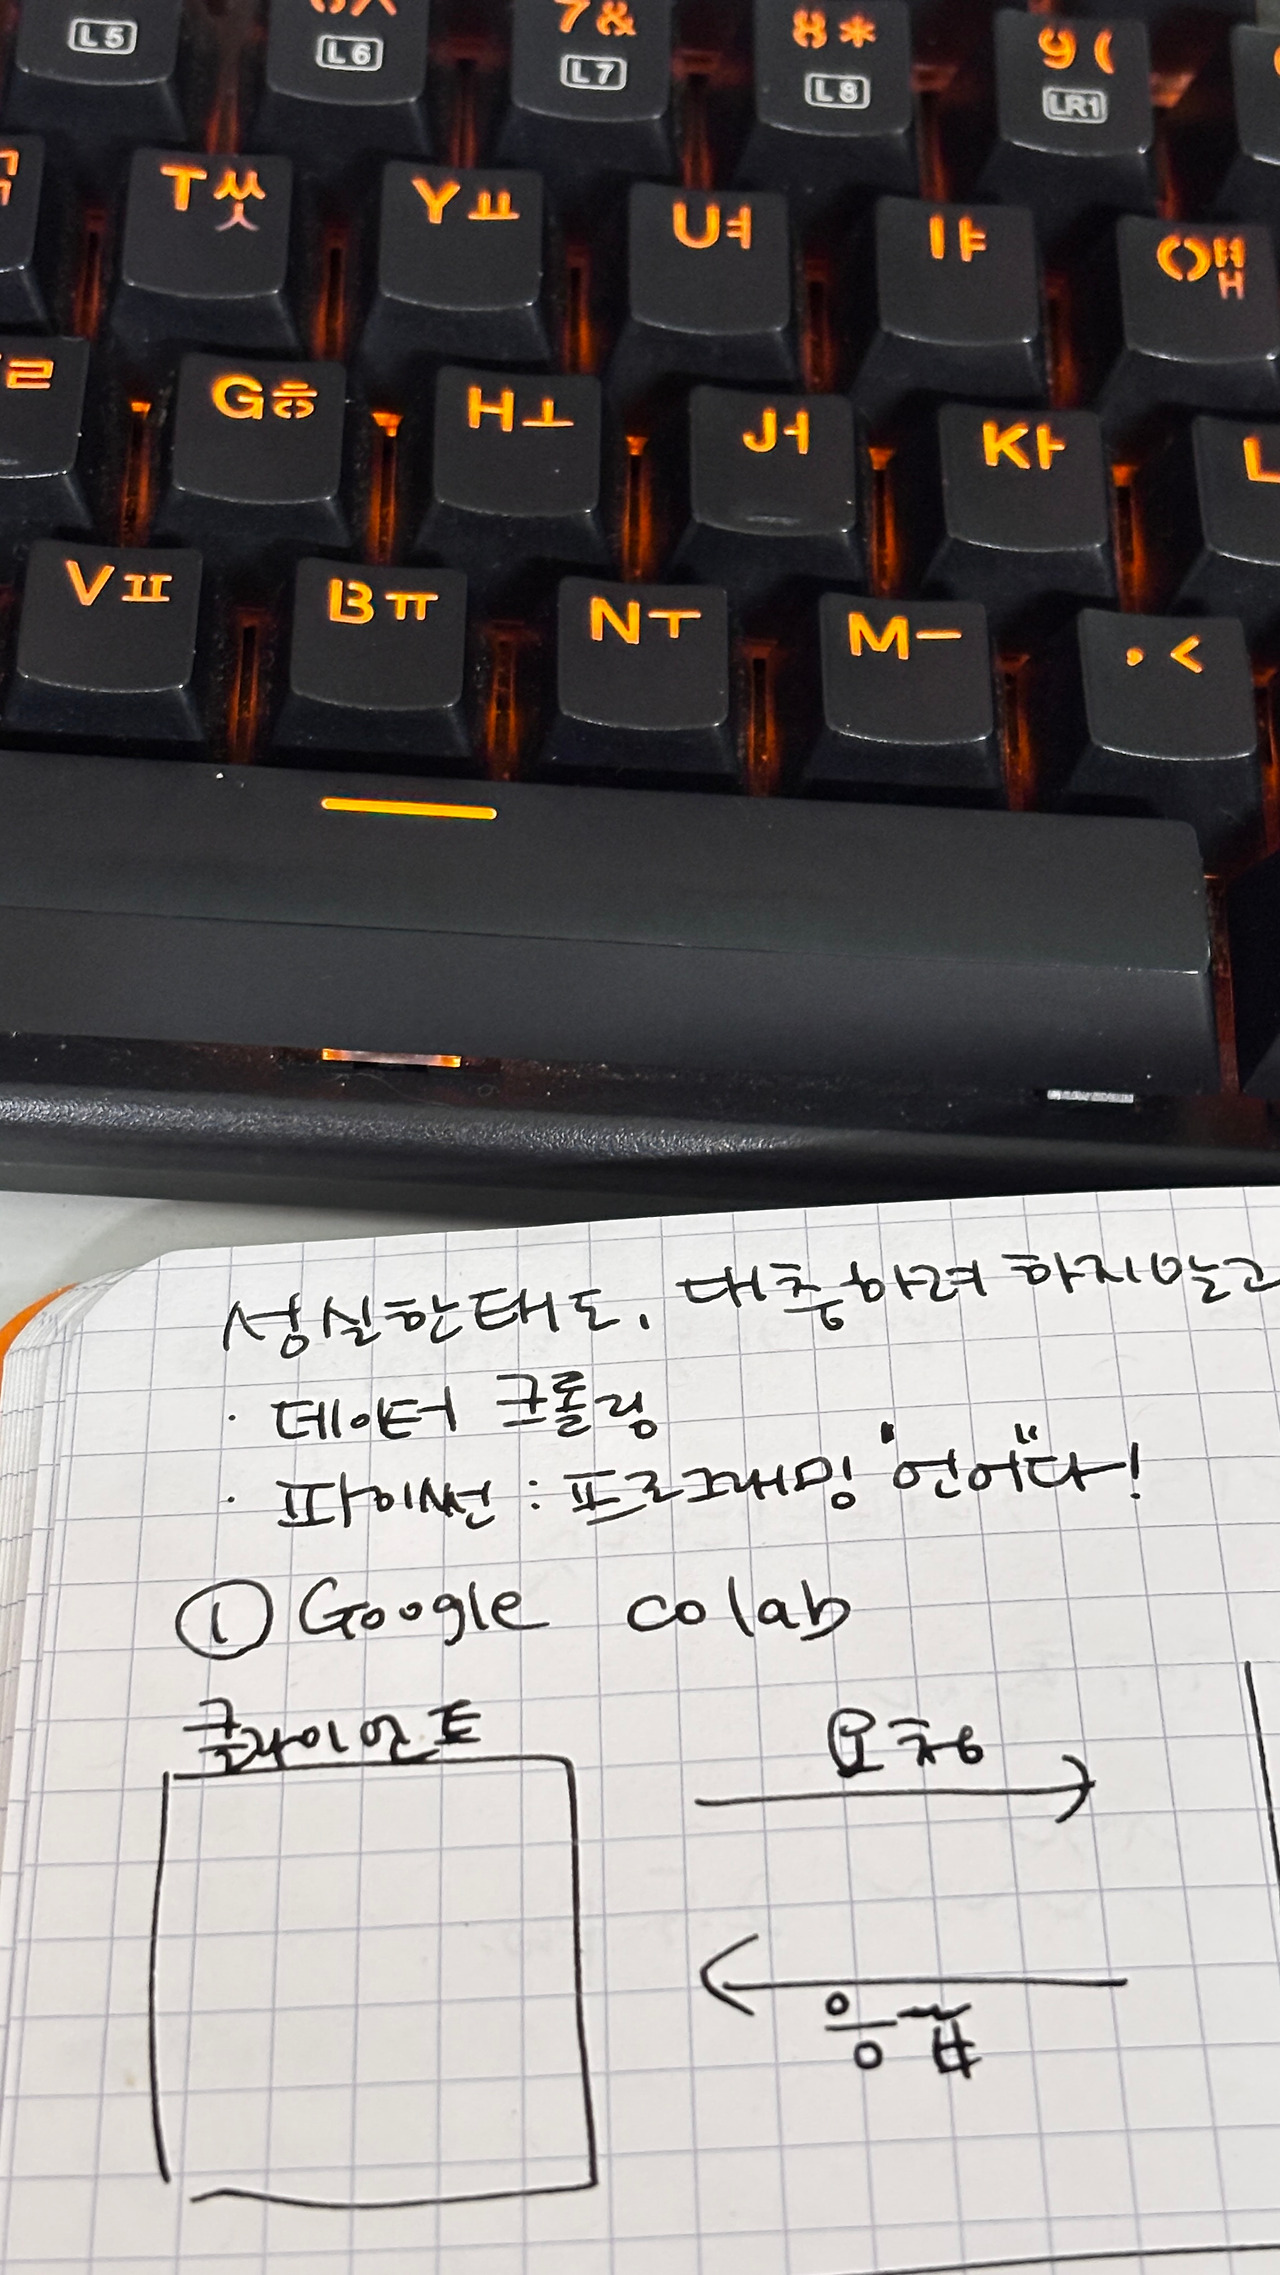 L5 L6 7& L7 8* L8 9( LR1
T ㅆ ㅅ Y ㅛ U ㅕ I ㅑ O ㅒ ㅐ
ㄹ G ㅎ H ㅗ J ㅓ K ㅏ L
V ㅍ B ㅠ N ㅜ M ㅡ , <
성실한태도. 대충하려 하지말고
· 데이터 크롤링
· 파이썬 : 프로그래밍 "언어"다!
① Google colab
클라이언트
요청
응답